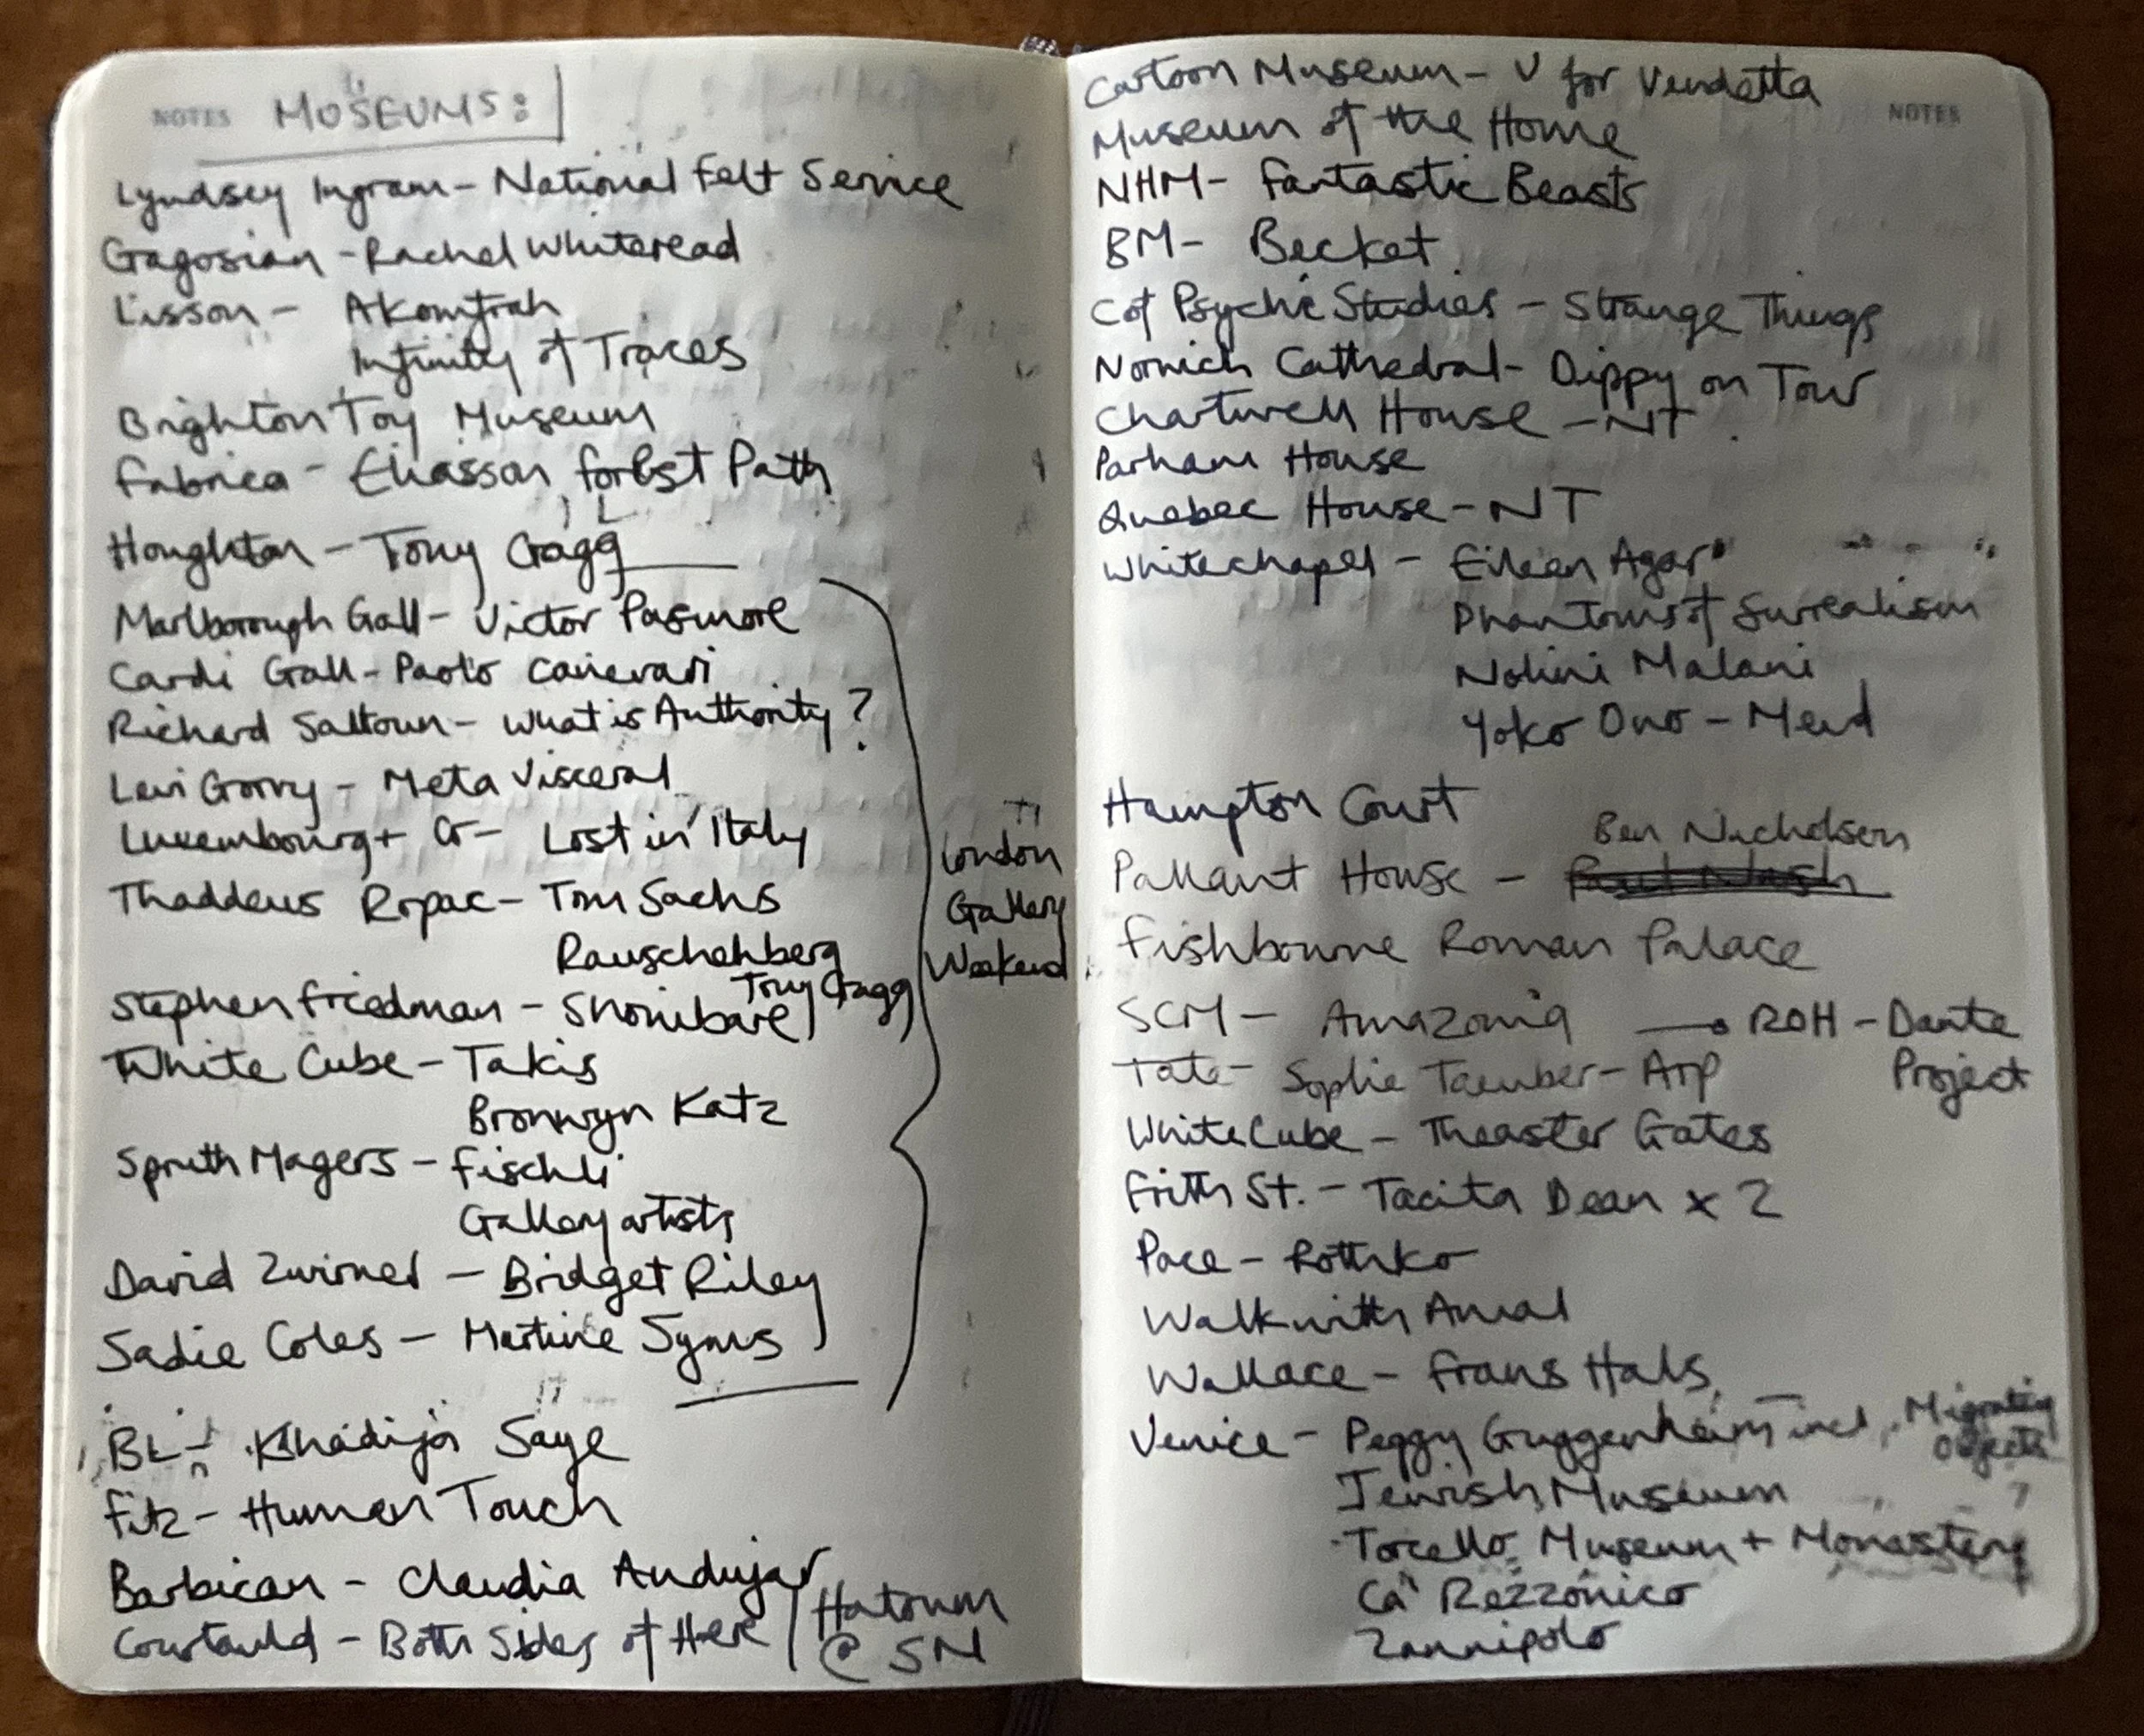 NOTES MUSEUMS:
Lyndsey Ingram - National Felt Service
Gagosian - Rachel Whiteread
Lisson - Akomfrah
Infinity of Traces
Brighton Toy Museum
Fabrica - Eliasson Forest Path
Houghton - Tony Cragg
Marlborough Gall - Victor Pasmore
Cardi Gall - Paolo Canevari
Richard Saltoun - What is Authority?
Levi Gorvy - Meta Visceral
Luxembourg + Co - Lost in Italy
Thaddeus Ropac - Tom Sachs
Rauschenberg
Tony Cragg
Stephen Friedman - Shonibare
White Cube - Takis
Bronwyn Katz
Spruth Magers - Fischli
Gallery artists
David Zwirner - Bridget Riley
Sadie Coles - Martine Syms
London
Gallery
Weekend
BL - Khadija Saye
Fitz - Human Touch
Barbican - Claudia Andujar
Courtauld - Both Sides of Here
Hatoum
@ SM
Cartoon Museum - V for Vendetta
NOTES
Museum of the Home
NHM - Fantastic Beasts
BM - Becket
C of Psychic Studies - Strange Things
Norwich Cathedral - Dippy on Tour
Chartwell House - NT
Parham House
Quebec House - NT
Whitechapel - Eileen Agar
Phantoms of Surrealism
Nalini Malani
Yoko Ono - Mend
Hampton Court
Ben Nicholson
Pallant House - Paul Nash
Fishbourne Roman Palace
SCM - Amazonia → ROH - Dante
Project
Tate - Sophie Taeuber-Arp
White Cube - Theaster Gates
Frith St. - Tacita Dean x 2
Pace - Rothko
Walk with Amal
Wallace - Frans Hals
Venice - Peggy Guggenheim incl. Migrating
Objects
Jewish Museum
Torcello Museum + Monastery
Ca' Rezzonico
Zannipolo